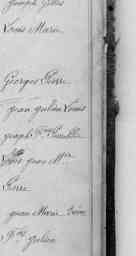 Joseph Gilles
Louis Marie
Georges Pierre
jean julien Louis
joseph
Louis jean M.ie
Pierre
jean Marie
julien